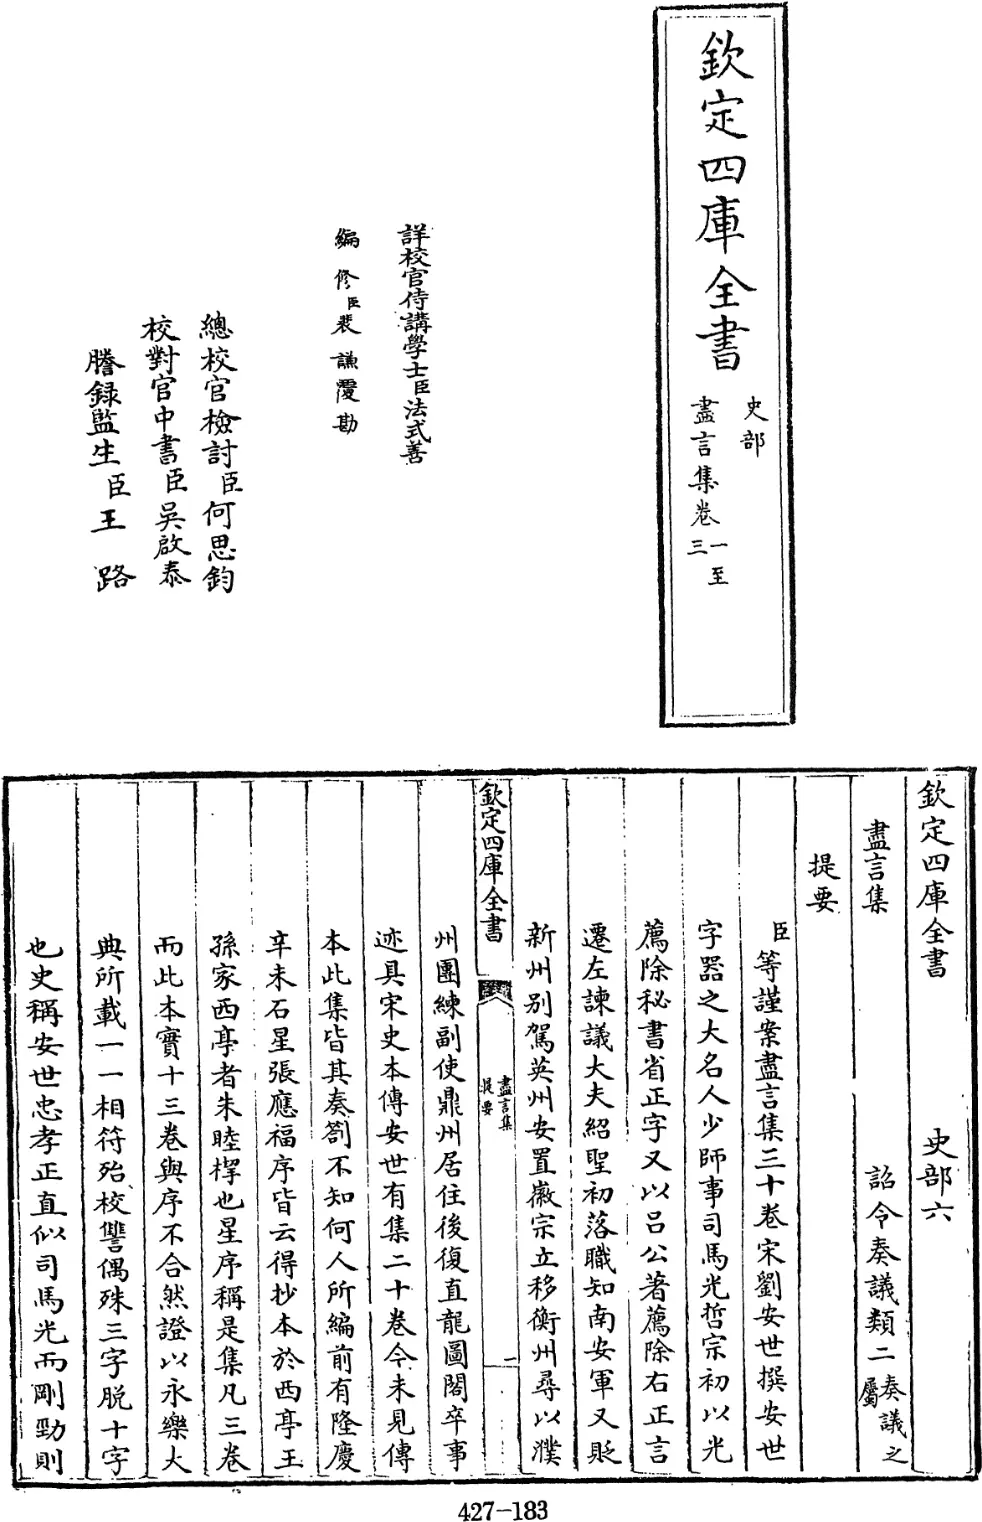 欽定四庫全書
史部
盡言集卷一至三
詳校官侍講學士臣法式善
編修臣裴謙覆勘
總校官檢討臣何思鈞
校對官中書臣吳啟泰
謄録監生臣王路
欽定四庫全書 史部六
盡言集 詔令奏議類二奏議之屬
提要
臣等謹案盡言集三十卷宋劉安世撰安世
字器之大名人少師事司馬光哲宗初以光
薦除秘書省正字又以呂公著薦除右正言
遷左諫議大夫紹聖初落職知南安軍又貶
新州別駕英州安置徽宗立移衡州尋以濮
欽定四庫全書
盡言集
提要
一
州團練副使鼎州居住後復直龍圖閣卒事
迹具宋史本傳安世有集二十卷今未見傳
本此集皆其奏劄不知何人所編前有隆慶
辛未石星張應福序皆云得抄本於西亭王
孫家西亭者朱睦㮮也星序稱是集凡三卷
而此本實十三卷與序不合然證以永樂大
典所載一一相符殆校讐偶殊三字脫十字
也史稱安世忠孝正直似司馬光而剛勁則
427-183